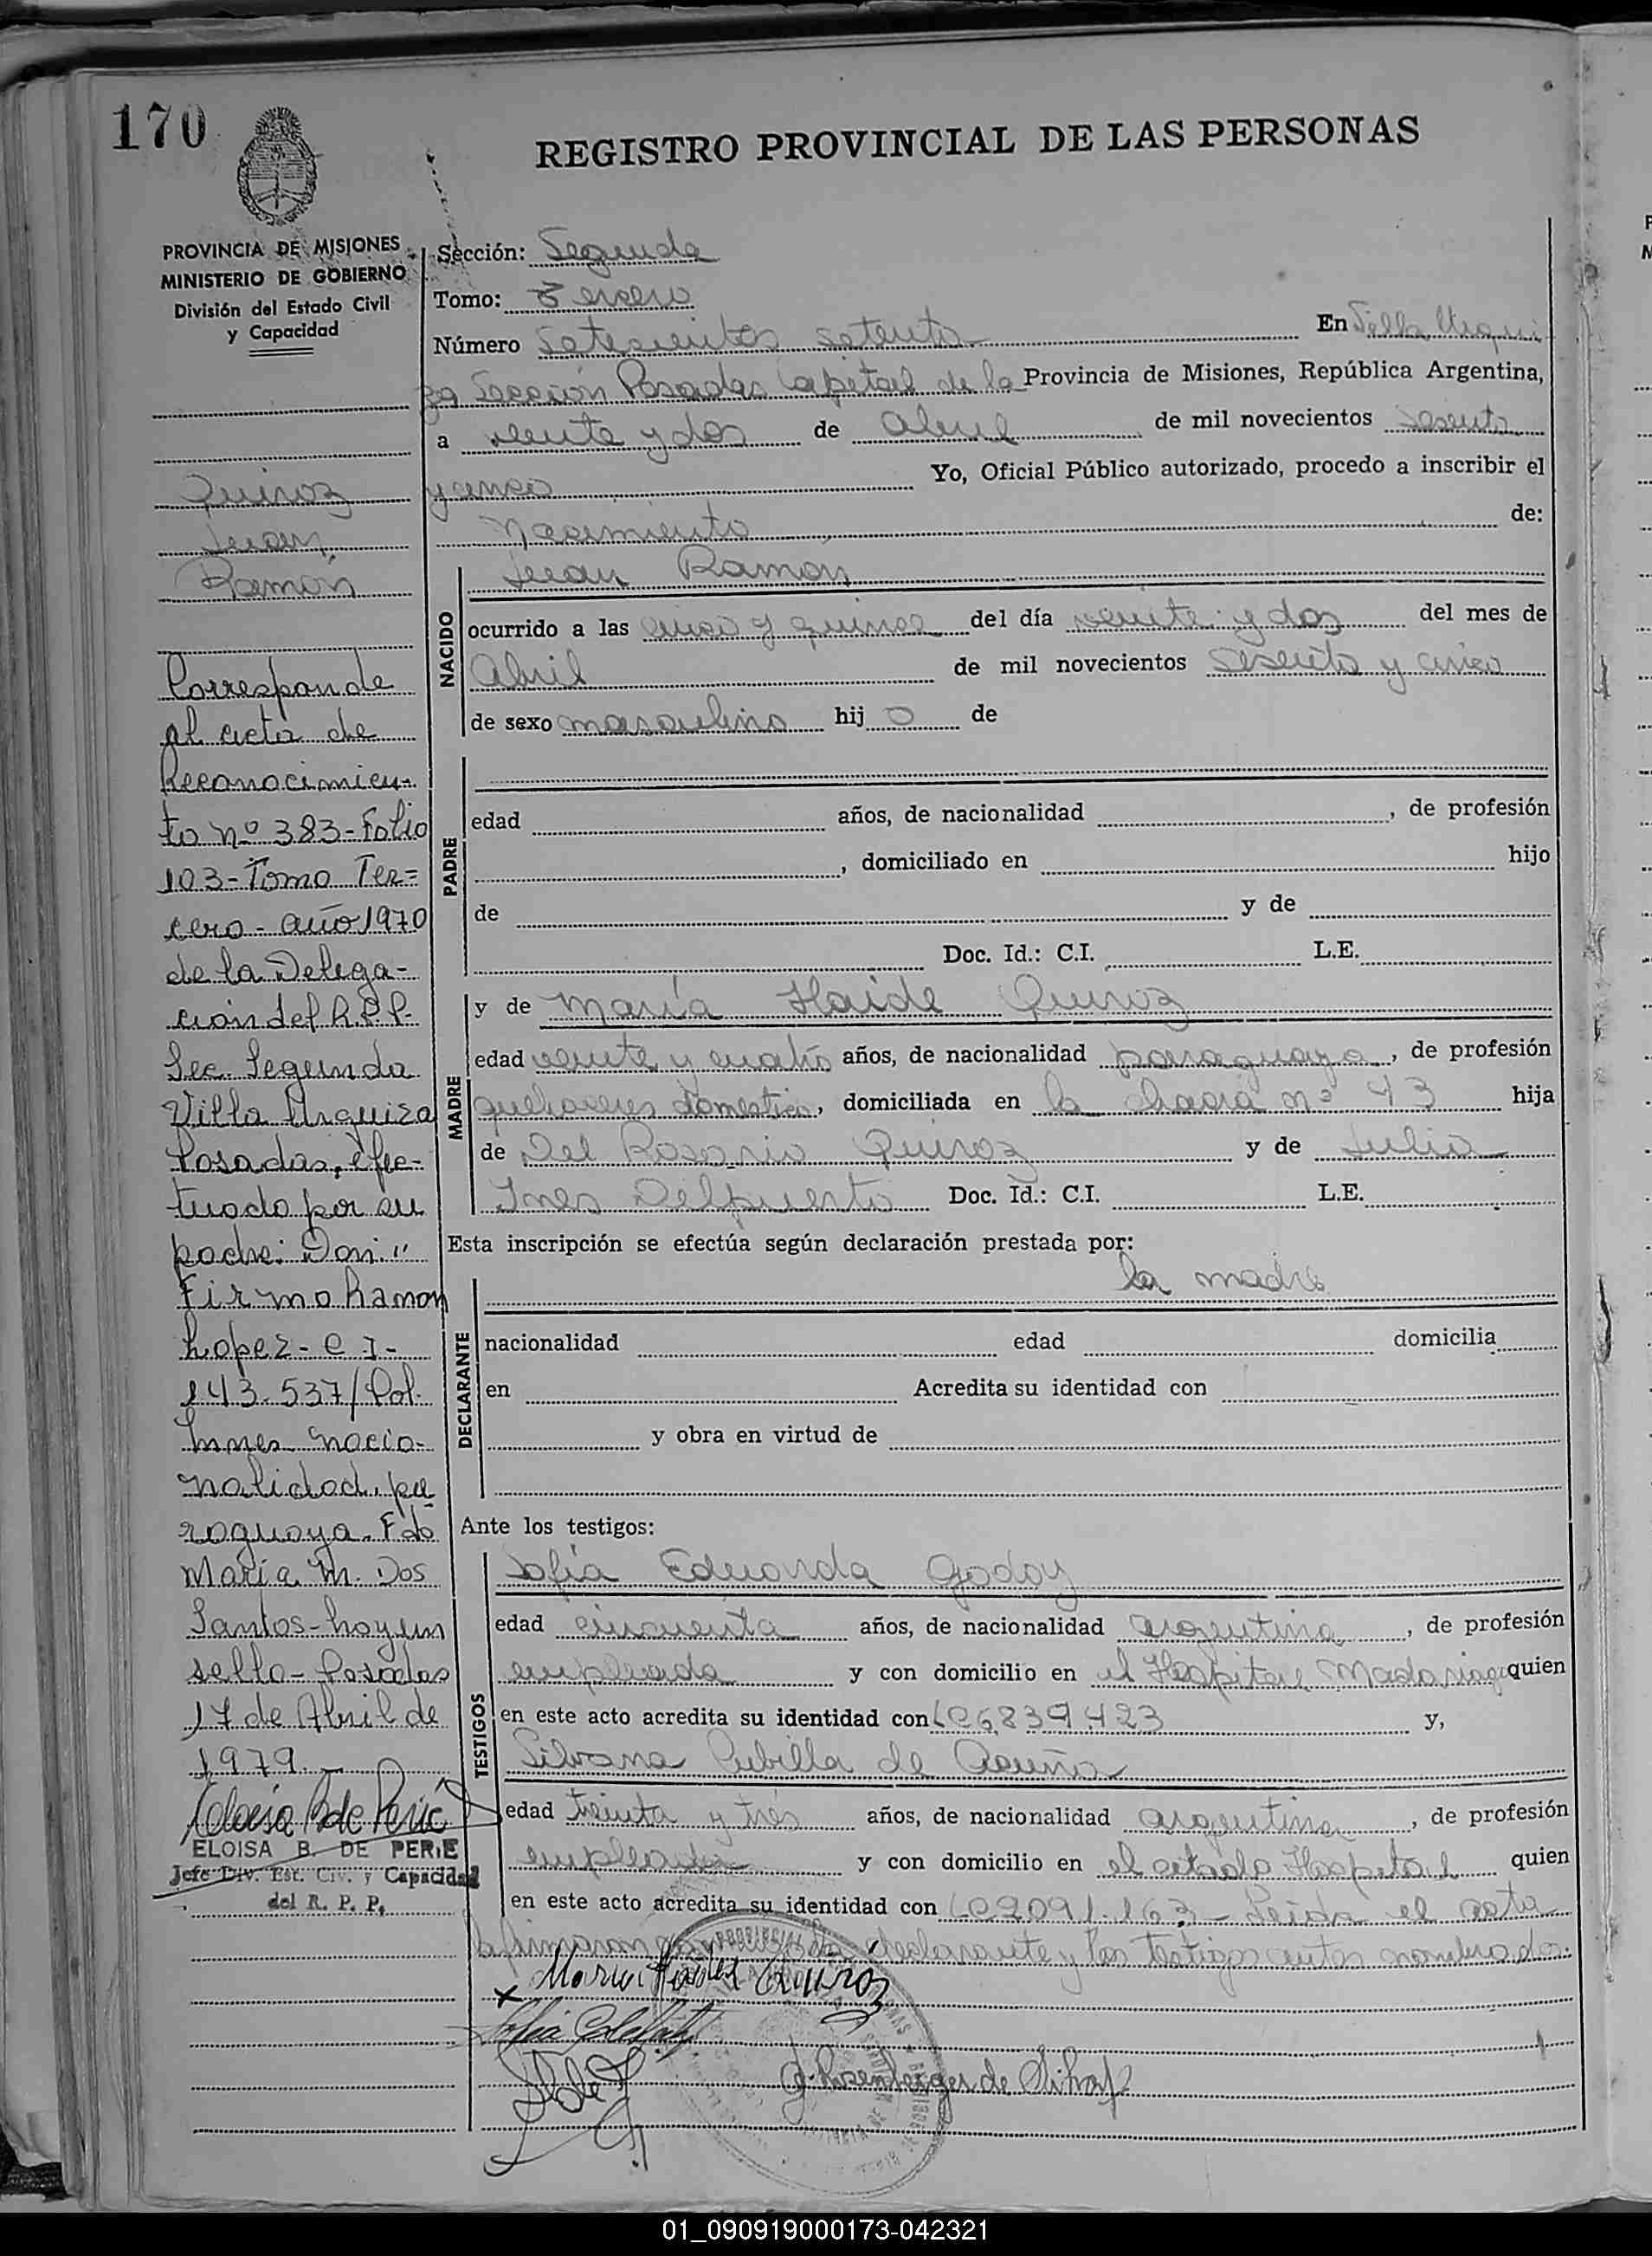 170
REGISTRO PROVINCIAL DE LAS PERSONAS
PROVINCIA DE MISIONES
MINISTERIO DE GOBIERNO
División del Estado Civil
y Capacidad
Quiroz
Juan
Ramón
Corresponde
al acta de
Reconocimien-
to nº 383-Folio
103-Tomo Ter=
cero-año 1970
de la Delega-
ción del R.P.P.
Sec. Segunda
Villa Urquiza
Posadas, efec-
tuado por su
padre: Don "
Firmo Ramon
Lopez- C I-
143.537/Pol.
Mnes nacio-
nalidad, pa
raguaya. Fdo
María M. Dos
Santos-hay un
sello-Posadas
17 de Abril de
1979.-
ELOISA B. DE PERIE
Jefe Div. Est. Civ. y Capacidad
del R. P. P.
Sección: Segunda
Tomo: Tercero
Número Setecientos setenta En Villa Urqui
za Sección Posadas Capital de la Provincia de Misiones, República Argentina,
a veinte y dos de Abril de mil novecientos sesenta
y cinco Yo, Oficial Público autorizado, procedo a inscribir el
Nacimiento de:
NACIDO
Juan Ramón
ocurrido a las cinco y quince del día veinte y dos del mes de
Abril de mil novecientos sesenta y cinco
de sexo masculino hij o de
PADRE
edad años, de nacionalidad , de profesión
, domiciliado en hijo
de y de
Doc. Id.: C.I. L.E.
MADRE
y de María Haide Quiroz
edad veinte y cuatro años, de nacionalidad paraguaya, de profesión
quehaceres domestico, domiciliada en la chacra nº 43 hija
de Del Rosario Quiroz y de Julia
Ines Delpuerto Doc. Id.: C.I. L.E.
Esta inscripción se efectúa según declaración prestada por:
la madre
DECLARANTE
nacionalidad edad domicilia
en Acredita su identidad con
y obra en virtud de
Ante los testigos:
TESTIGOS
Sofía Eduarda Godoy
edad cincuenta años, de nacionalidad argentina, de profesión
empleada y con domicilio en el Hospital Madariaga quien
en este acto acredita su identidad con LC6.839.423 y,
Silvana Cubilla de Acuña
edad treinta y tres años, de nacionalidad argentina, de profesión
empleada y con domicilio en el citado Hospital quien
en este acto acredita su identidad con LC2091.163- Leida el acta
la firman declarante y los testigos antes nombrados.
x